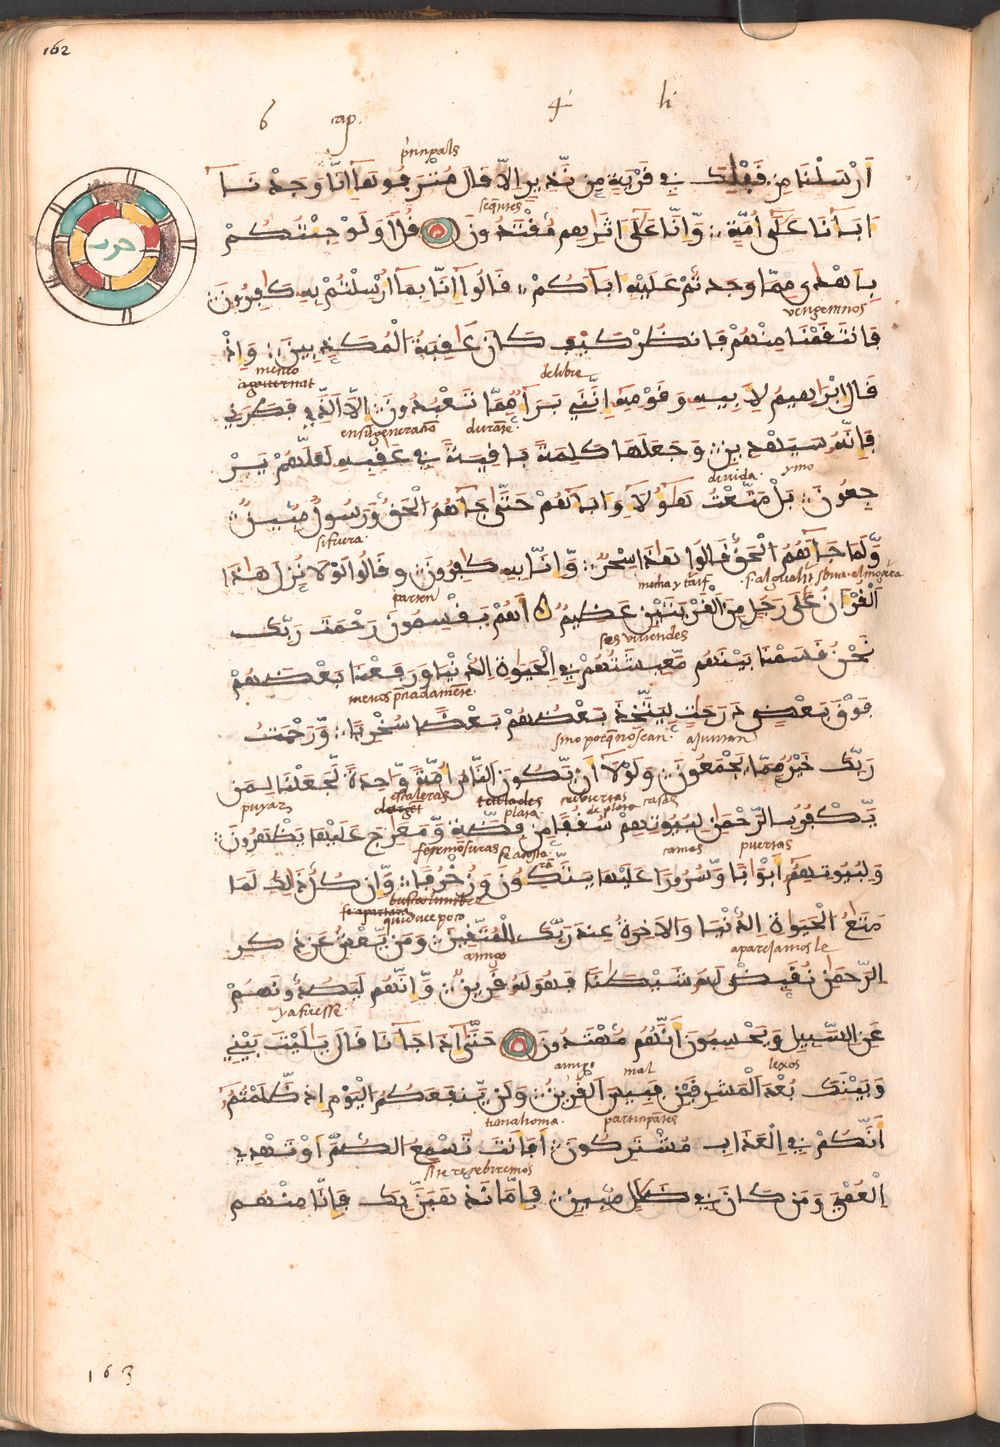 162
6 cap. 4 li
prinpals
أَرْسَلْنَا مِن قَبْلِكَ فِي قَرْيَةٍ مِّن نَّذِيرٍ اِلَّا قَالَ مُتْرَفُوهَا إِنَّا وَجَدْنَا
seqntes
حزب
ءَابَاءَنَا عَلَىٰ أُمَّةٍ وَّإِنَّا عَلَىٰ ءَاثَٰرِهِم مُّقْتَدُونَ قُلْ أَوَلَوْ جِئْتُكُم
بِأَهْدَىٰ مِمَّا وَجَدتُّمْ عَلَيْهِ ءَابَاءَكُمْ قَالُوا إِنَّا بِمَا أُرْسِلْتُم بِهِ كَافِرُونَ
vengemnos
فَانتَقَمْنَا مِنْهُمْ فَانظُرْ كَيْفَ كَانَ عَاقِبَةُ الْمُكَذِّبِينَ وَإِذْ
mento delibre
قَالَ إِبْرَاهِيمُ لِأَبِيهِ وَقَوْمِهِ إِنَّنِي بَرَاءٌ مِّمَّا تَعْبُدُونَ إِلَّا الَّذِي فَطَرَنِي
en su generaño durate
فَإِنَّهُ سَيَهْدِينِ وَجَعَلَهَا كَلِمَةً بَاقِيَةً فِي عَقِبِهِ لَعَلَّهُمْ يَرْ
devida. ymo
جِعُونَ بَلْ مَتَّعْتُ هَؤُلَاءِ وَءَابَاءَهُمْ حَتَّىٰ جَاءَهُمُ الْحَقُّ وَرَسُولٌ مُّبِينٌ
sifuera
وَلَمَّا جَاءَهُمُ الْحَقُّ قَالُوا هَٰذَا سِحْرٌ وَّإِنَّا بِهِ كَافِرُونَ وَقَالُوا لَوْلَا نُزِّلَ هَٰذَا
parten mecha y taif
الْقُرْءَانُ عَلَىٰ رَجُلٍ مِّنَ الْقَرْيَتَيْنِ عَظِيمٍ أَهُمْ يَقْسِمُونَ رَحْمَتَ رَبِّكَ
ses viviendes
نَحْنُ قَسَمْنَا بَيْنَهُم مَّعِيشَتَهُمْ فِي الْحَيَوٰةِ الدُّنْيَا وَرَفَعْنَا بَعْضَهُمْ
فَوْقَ بَعْضٍ دَرَجَٰتٍ لِيَتَّخِذَ بَعْضُهُم بَعْضًا سُخْرِيًّا وَّرَحْمَتُ
sino porq no sean ajuntan
رَبِّكَ خَيْرٌ مِّمَّا يَجْمَعُونَ وَلَوْلَا أَن يَّكُونَ النَّاسُ أُمَّةً وَّاحِدَةً لَّجَعَلْنَا لِمَن
puyar escaleras plata cubiertas de plata casas
يَّكْفُرُ بِالرَّحْمَٰنِ لِبُيُوتِهِمْ سُقُفًا مِّن فِضَّةٍ وَّمَعَارِجَ عَلَيْهَا يَظْهَرُونَ
fermosuras camas puertas
وَلِبُيُوتِهِمْ أَبْوَابًا وَّسُرُرًا عَلَيْهَا يَتَّكُونَ وَزُخْرُفًا وَّإِن كُلُّ ذَٰلِكَ لَمَا
مَتَٰعُ الْحَيَوٰةِ الدُّنْيَا وَالْآخِرَةُ عِندَ رَبِّكَ لِلْمُتَّقِينَ وَمَن يَّعْشُ عَن ذِكْرِ
amigo aparejamos le
الرَّحْمَٰنِ نُقَيِّضْ لَهُ شَيْطَٰنًا فَهُوَ لَهُ قَرِينٌ وَّإِنَّهُمْ لَيَصُدُّونَهُمْ
ya fuesse
عَنِ السَّبِيلِ وَيَحْسِبُونَ أَنَّهُم مُّهْتَدُونَ حَتَّىٰ إِذَا جَاءَانَا قَالَ يَٰلَيْتَ بَيْنِي
amigo mal lexos
وَبَيْنَكَ بُعْدَ الْمَشْرِقَيْنِ فَبِيسَ الْقَرِينُ وَلَن يَّنفَعَكُمُ الْيَوْمَ إِذ ظَّلَمْتُمْ
tu mahoma. partinpates
أَنَّكُمْ فِي الْعَذَابِ مُشْتَرِكُونَ أَفَأَنتَ تُسْمِعُ الصُّمَّ أَوْ تَهْدِي
si te reçebiremos
الْعُمْيَ وَمَن كَانَ فِي ضَلَٰلٍ مُّبِينٍ فَإِمَّا نَذْهَبَنَّ بِكَ فَإِنَّا مِنْهُم
163